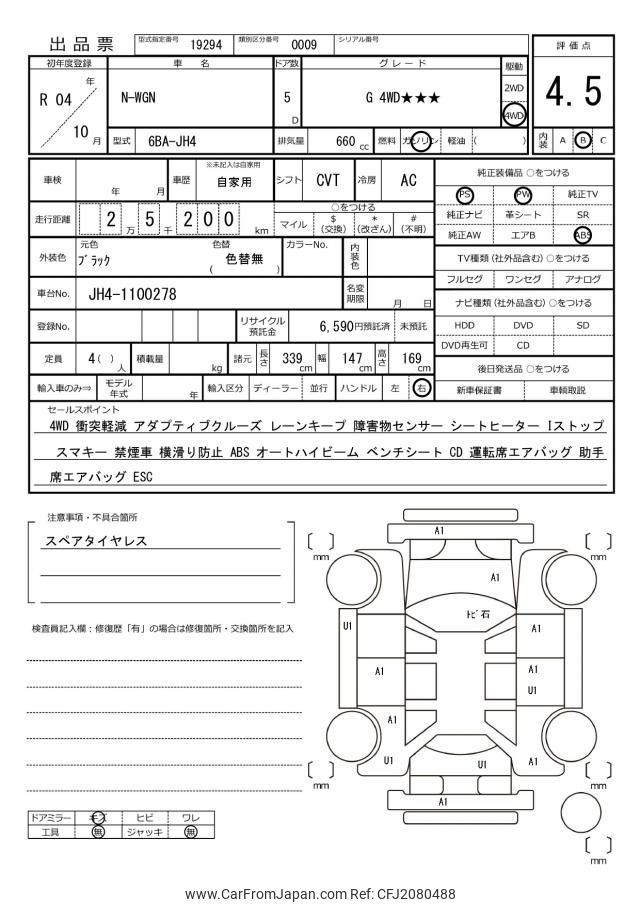 出品票
型式指定番号 19294 類別区分番号 0009 シリアル番号
評価点
4.5
内装 A B C
初年度登録 車名 ドア数 グレード 駆動
R 04 年 10 月
N-WGN
5 D
G 4WD★★★
2WD
4WD
型式 6BA-JH4 排気量 660 cc 燃料 ガソリン 軽油 ( )
車検 年 月 車歴 ※未記入は自家用 自家用 シフト CVT 冷房 AC
走行距離 2 万 5 千 2 0 0 km
○をつける
マイル $ (交換) * (改ざん) # (不明)
外装色 元色 ブラック 色替 ( 色替無 ) カラーNo. 内装色
車台No. JH4-1100278 名変期限 月 日
登録No. リサイクル預託金 6,590円預託済 未預託
定員 4 ( ) 人 積載量 kg 諸元 長さ 339 cm 幅 147 cm 高さ 169 cm
輸入車のみ⇒ モデル年式 年 輸入区分 ディーラー 並行 ハンドル 左 右
純正装備品 ○をつける
PS PW 純正TV
純正ナビ 革シート SR
純正AW エアB ABS
TV種類 (社外品含む) ○をつける
フルセグ ワンセグ アナログ
ナビ種類 (社外品含む) ○をつける
HDD DVD SD
DVD再生可 CD
後日発送品 ○をつける
新車保証書 車輌取説
セールスポイント
4WD 衝突軽減 アダプティブクルーズ レーンキープ 障害物センサー シートヒーター Iストップ
スマキー 禁煙車 横滑り防止 ABS オートハイビーム ベンチシート CD 運転席エアバッグ 助手
席エアバッグ ESC
注意事項・不具合箇所
スペアタイヤレス
検査員記入欄：修復歴「有」の場合は修復箇所・交換箇所を記入
ドアミラー キズ ヒビ ワレ
工具 無 ジャッキ 無
A1
mm
mm
A1
ﾄﾋﾞ石
U1
A1
A1
A1
U1
A1
U1
U1
A1
mm
A1
mm
mm
www.CarFromJapan.com Ref: CFJ2080488